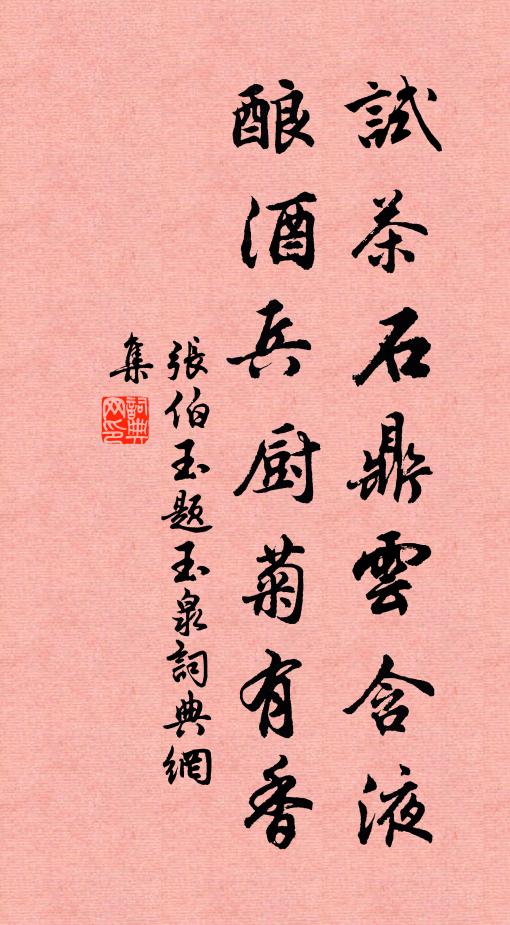 試茶石鼎雲含液
酿酒兵厨菊有香
張伯玉题玉泉詞典網
集
詞典
网印